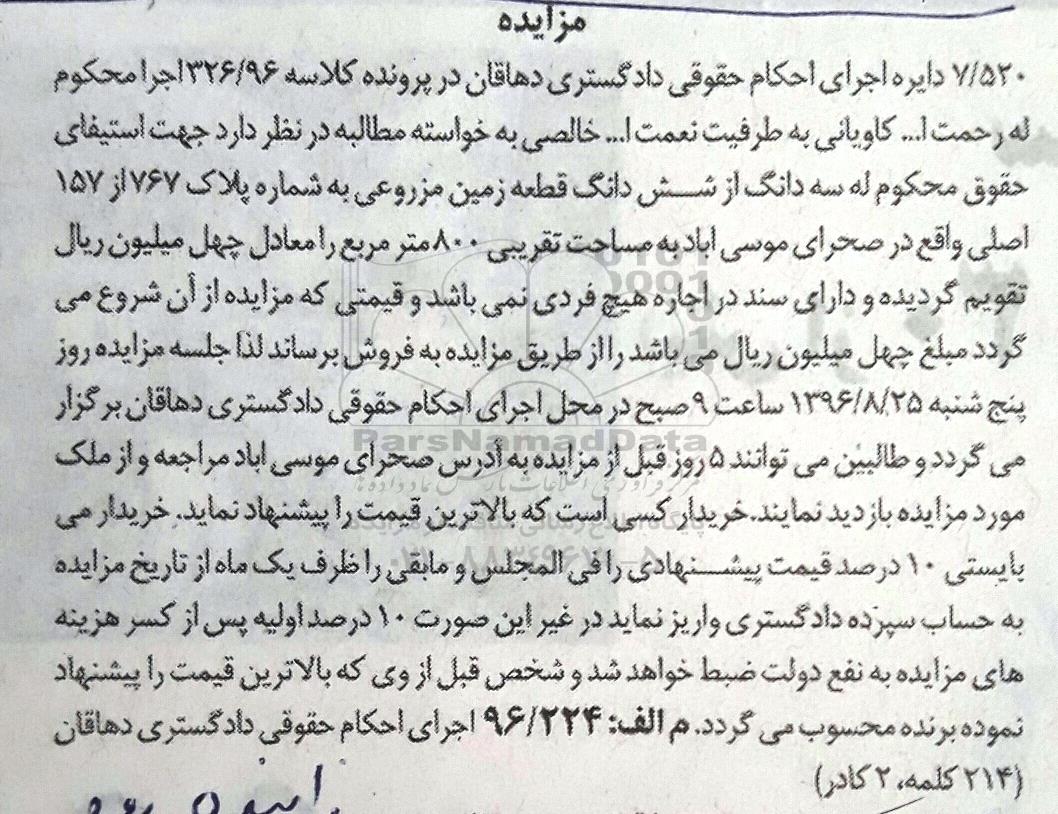 مزایده
۷/۵۲۰ دایره اجرای احکام حقوقی دادگستری دهاقان در پرونده کلاسه ۳۲۶/۹۶ اجرا محکوم
له رحمت ا... کاویانی به طرفیت نعمت ا... خالصی به خواسته مطالبه در نظر دارد جهت استیفای
حقوق محکوم له سه دانگ از شش دانگ قطعه زمین مزروعی به شماره پلاک ۷۶۷ از ۱۵۷
اصلی واقع در صحرای موسی اباد به مساحت تقریبی ۸۰۰ متر مربع را معادل چهل میلیون ریال
تقویم گردیده و دارای سند در اجاره هیچ فردی نمی باشد و قیمتی که مزایده از آن شروع می
گردد مبلغ چهل میلیون ریال می باشد را از طریق مزایده به فروش برساند لذا جلسه مزایده روز
پنج شنبه ۱۳۹۶/۸/۲۵ ساعت ۹ صبح در محل اجرای احکام حقوقی دادگستری دهاقان برگزار
ParsNamadData
می گردد و طالبین می توانند ۵ روز قبل از مزایده به آدرس صحرای موسی اباد مراجعه و از ملک
مورد مزایده بازدید نمایند. خریدار کسی است که بالاترین قیمت را پیشنهاد نماید. خریدار می
بایستی ۱۰ درصد قیمت پیشنهادی را فی المجلس و مابقی را ظرف یک ماه از تاریخ مزایده
به حساب سپرده دادگستری واریز نماید در غیر این صورت ۱۰ درصد اولیه پس از کسر هزینه
های مزایده به نفع دولت ضبط خواهد شد و شخص قبل از وی که بالاترین قیمت را پیشنهاد
نموده برنده محسوب می گردد. م الف: ۹۶/۲۲۴ اجرای احکام حقوقی دادگستری دهاقان
(۲۱۴ کلمه، ۲ کادر)